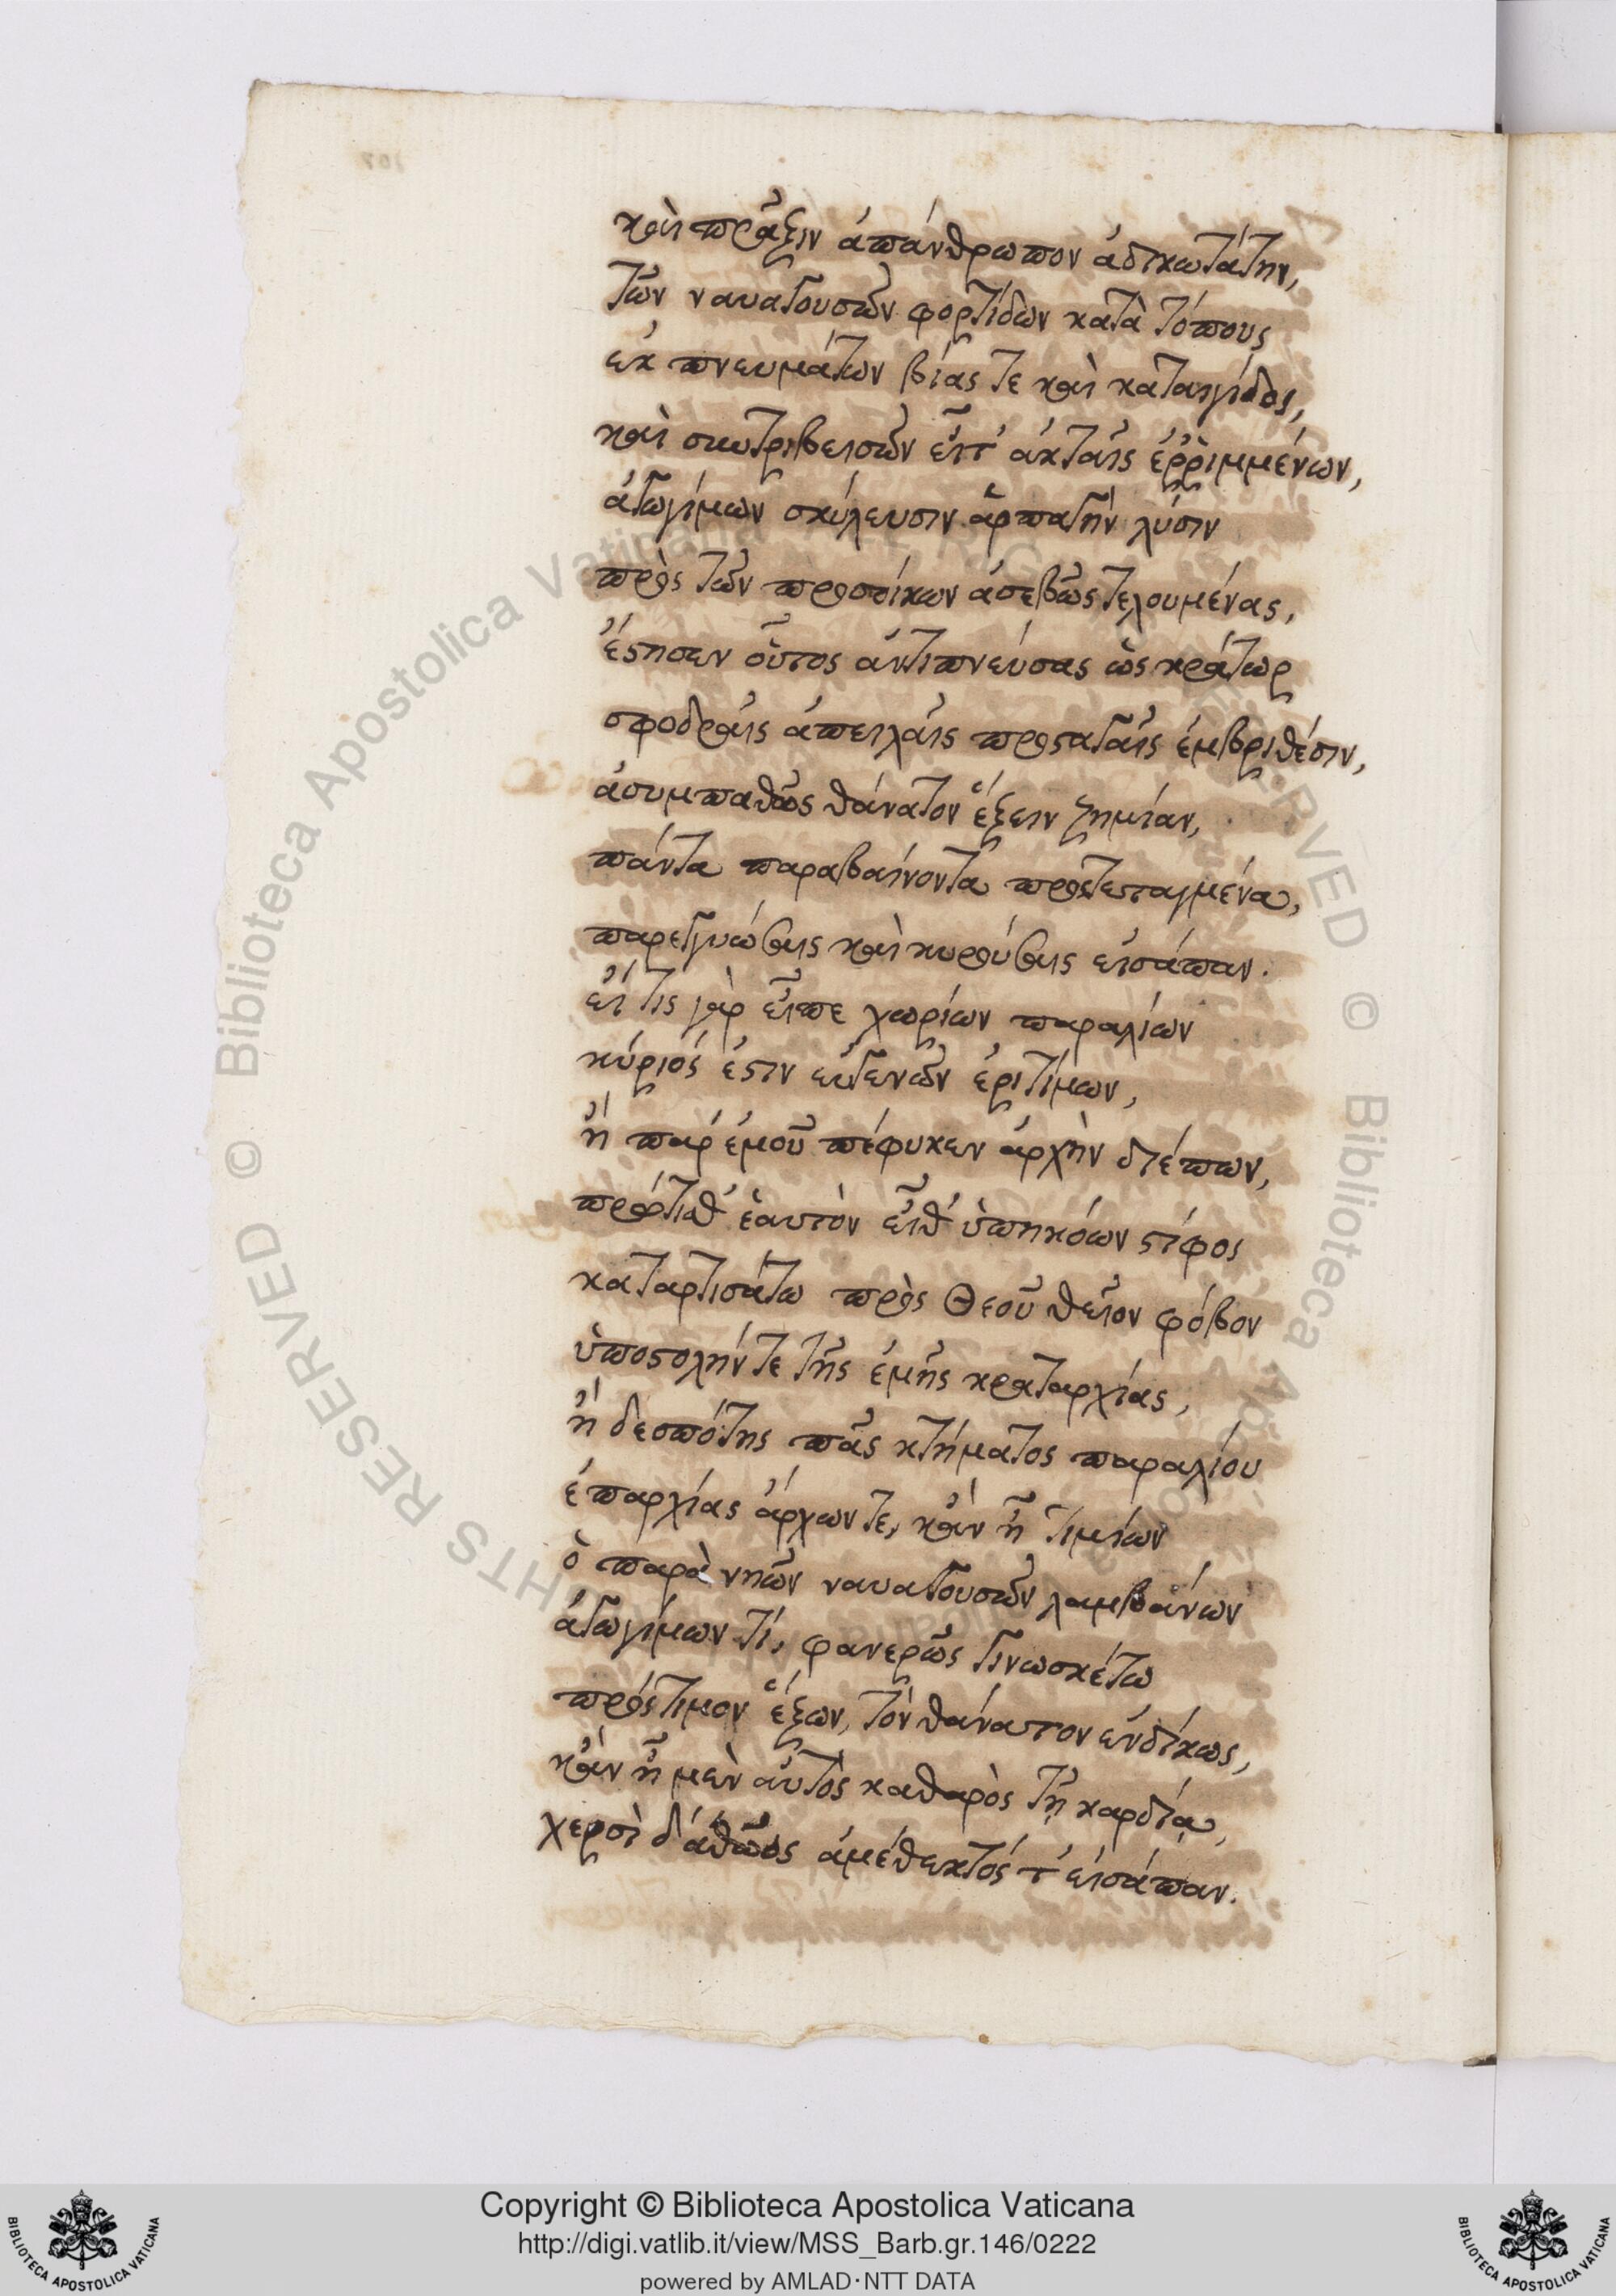 καὶ πρᾶξιν ἀπάνθρωπον ἀδικωτάτην,
τῶν ναυαγουσῶν φορτίδων κατὰ τόπους
ἐκ πνευμάτων βίας τε καὶ καταιγίδος,
καὶ σκωτριβεισῶν εἶτ' ἀκταῖς ἐῤῥιμμένων,
ἀγωγίμων σκύλευσιν ἁρπαγὴν λύσιν
πρὸς τῶν προσοίκων ἀσεβῶς τελουμένας,
ἔστησεν οὗτος ἀντιπνεύσας ὡς κράτωρ
σφοδραῖς ἀπειλαῖς προσταγαῖς ἐμβριθέσιν,
ἀσυμπαθῶς θάνατον ἕξειν ζημίαν,
πάντα παραβαίνοντα προστεταγμένα,
παρεγγυώσαις καὶ εἰσάπαν.
εἴ τις γὰρ εἶπε χωρίων παραλίων
κύριός ἐστιν εὐγενῶν ἐριτίμων,
ἢ παρ' ἐμοῦ πέφυκεν ἀρχὴν διέπων,
πρότιθ' ἑαυτὸν εἶθ' ὑπηκόων στίφος
καταρτισάτω πρὸς Θεοῦ θεῖον φόβον
ὑποστολήν τε τῆς ἐμῆς κραταρχίας,
ἢ δεσπότης πᾶς κτήματος παραλίου
ἐπαρχίας ἄρχων τε, κἂν ᾖ τιμίων
ὁ παρὰ νηῶν ναυαγουσῶν λαμβάνων
ἀγωγίμων τί, φανερῶς γινωσκέτω
πρόστιμον ἕξων, τὸν θάνατον ἐνδίκως,
κἂν ᾖ μὲν αὐτὸς καθαρὸς τῇ καρδίᾳ,
χερσὶ δ' ἀθῶος ἀμέθεκτός τ' εἰσάπαν.
Copyright © Biblioteca Apostolica Vaticana
http://digi.vatlib.it/view/MSS_Barb.gr.146/0222
powered by AMLAD·NTT DATA